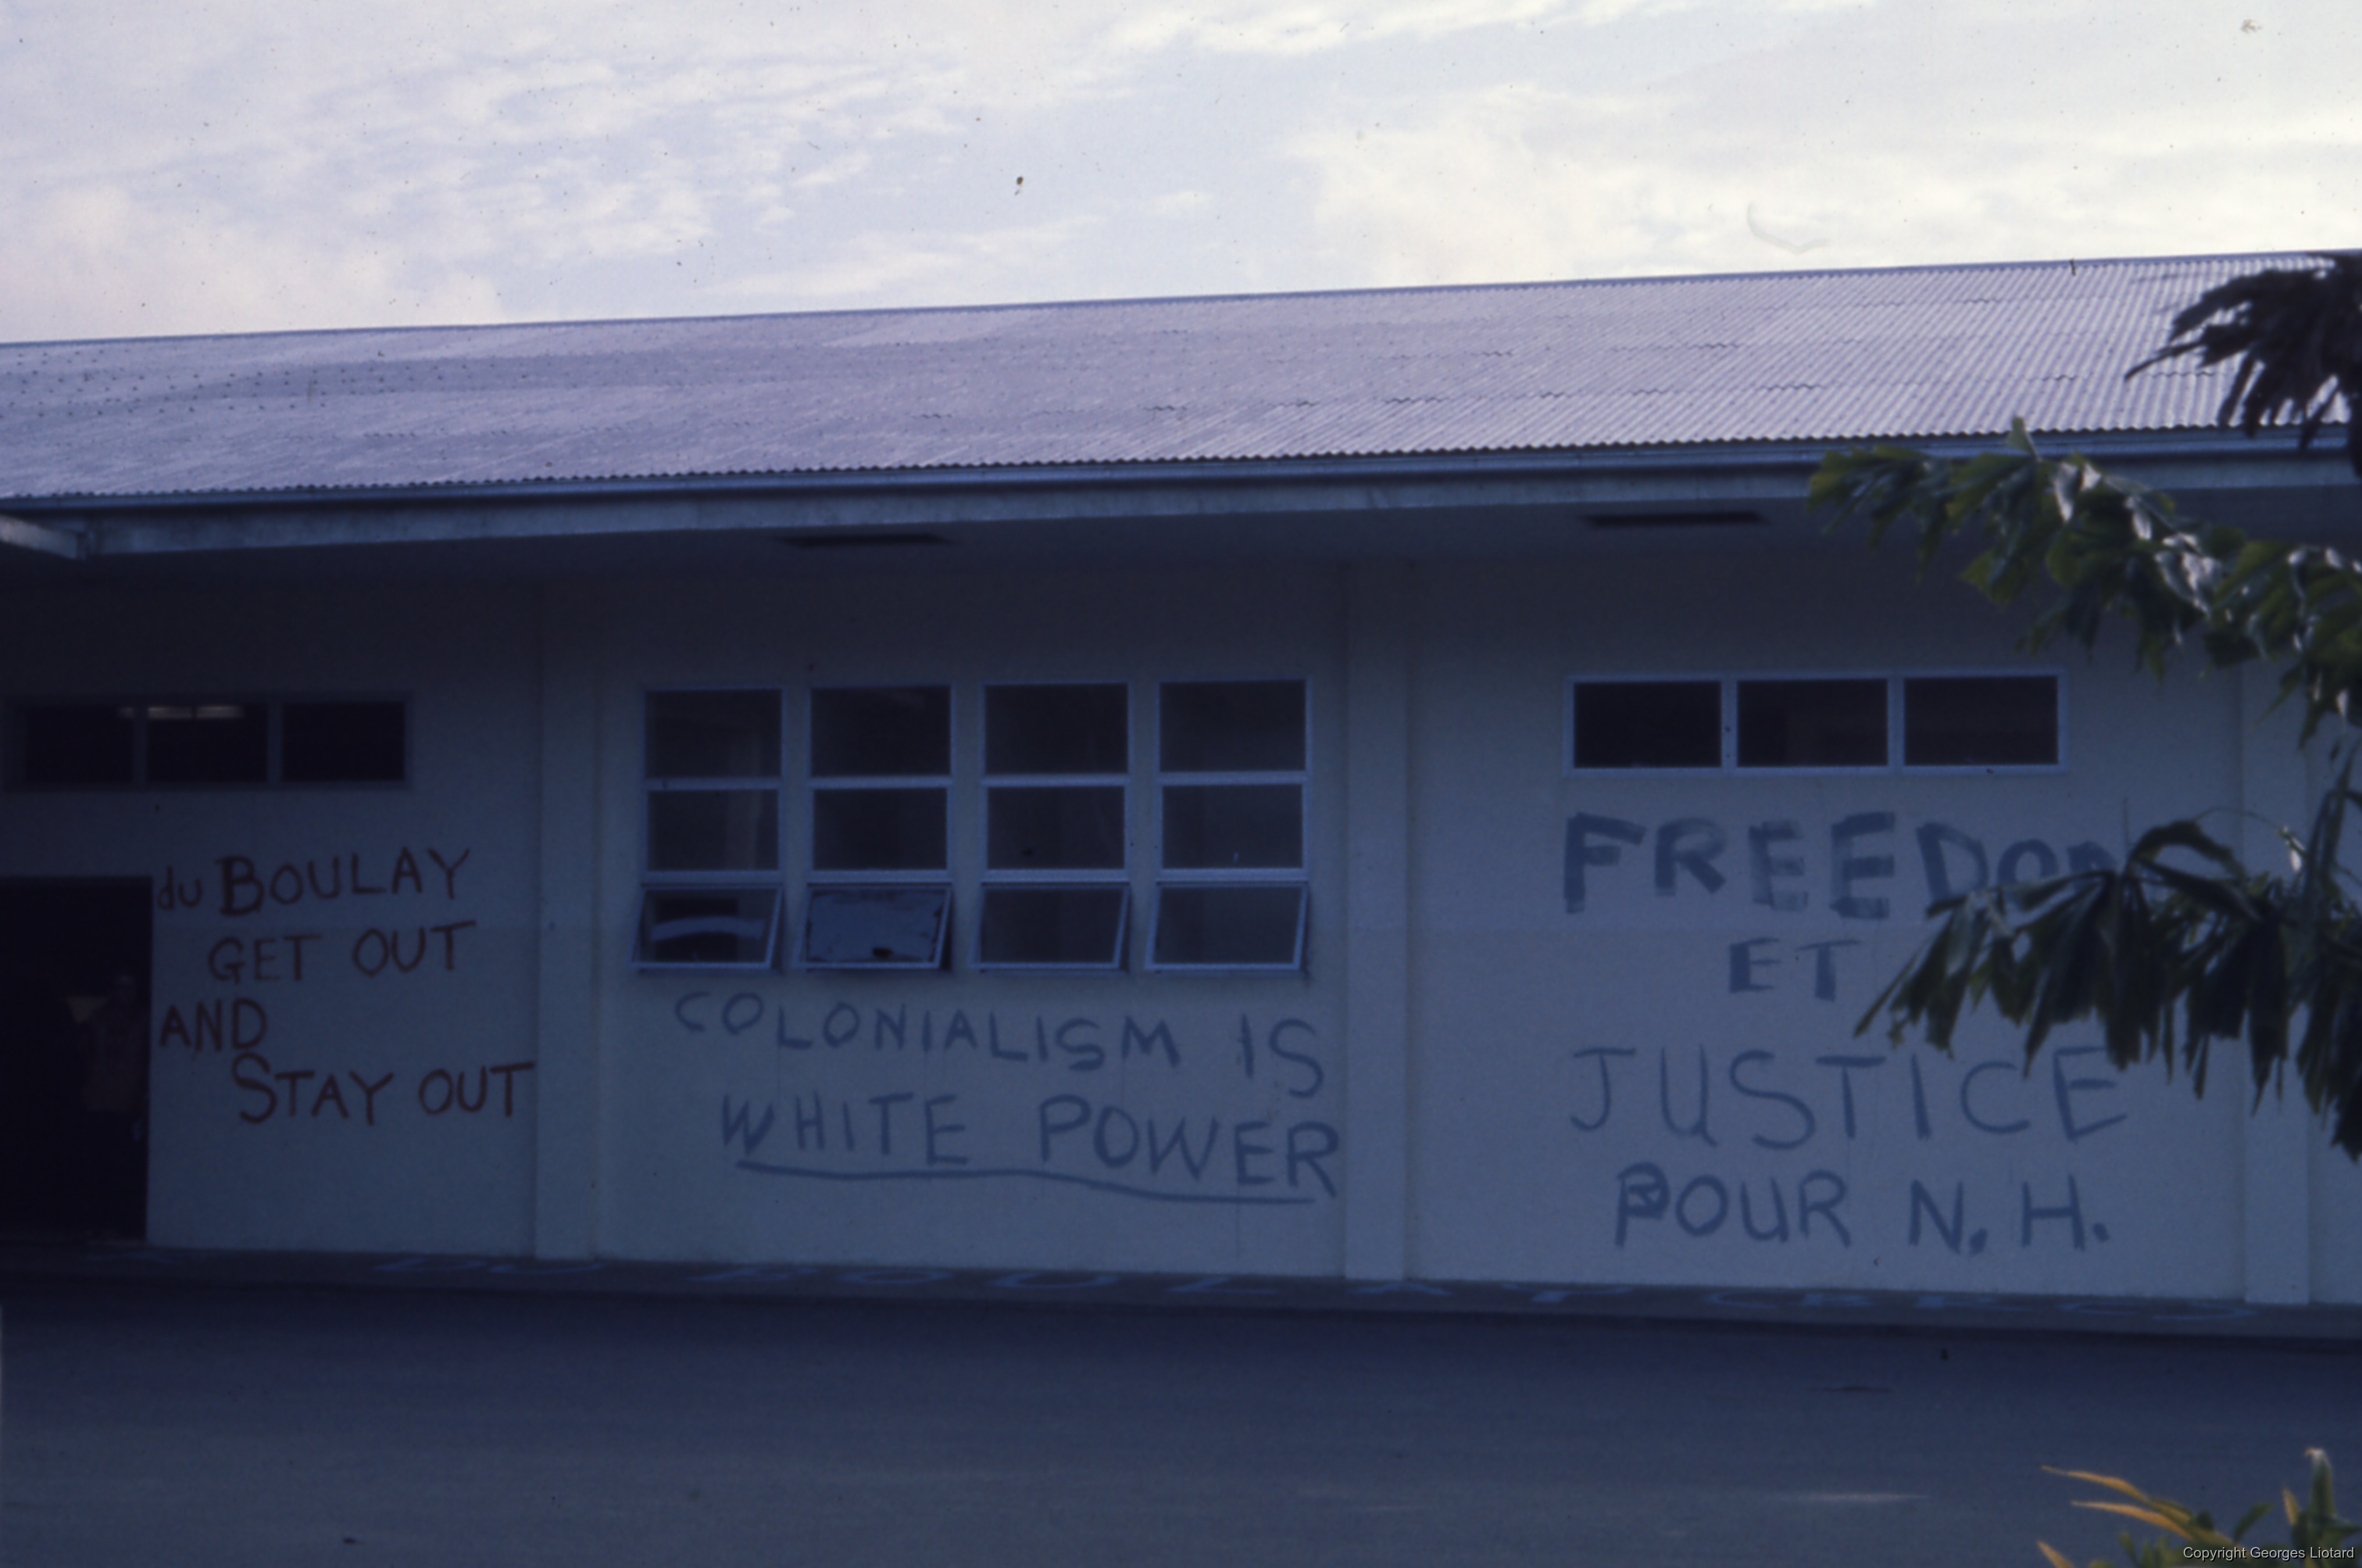 du BOULAY
GET OUT
AND
STAY OUT
COLONIALISM IS
WHITE POWER
FREEDOM
ET
JUSTICE
POUR N.H.
DU BOULAY
Copyright Georges Liotard